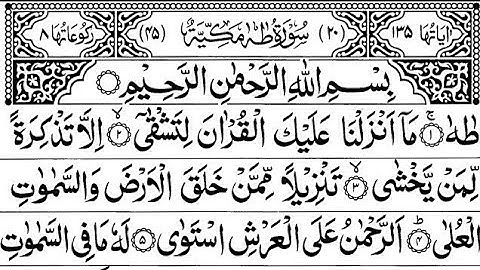 اٰيَاتُهَا ١٣٥ (٢٠) سُوْرَةُ طٰهٰ مَكِّيَّةٌ (٤٥) رُكُوْعَاتُهَا ٨
بِسْمِ اللّٰهِ الرَّحْمٰنِ الرَّحِيْمِ
طٰهٰ ١ مَاۤ اَنْزَلْنَا عَلَيْكَ الْقُرْاٰنَ لِتَشْقٰٓى ٢ اِلَّا تَذْكِرَةً
لِّمَنْ يَّخْشٰى ٣ تَنْزِيْلًا مِّمَّنْ خَلَقَ الْاَرْضَ وَالسَّمٰوٰتِ
الْعُلٰى ٤ اَلرَّحْمٰنُ عَلَى الْعَرْشِ اسْتَوٰى ٥ لَهٗ مَا فِى السَّمٰوٰتِ